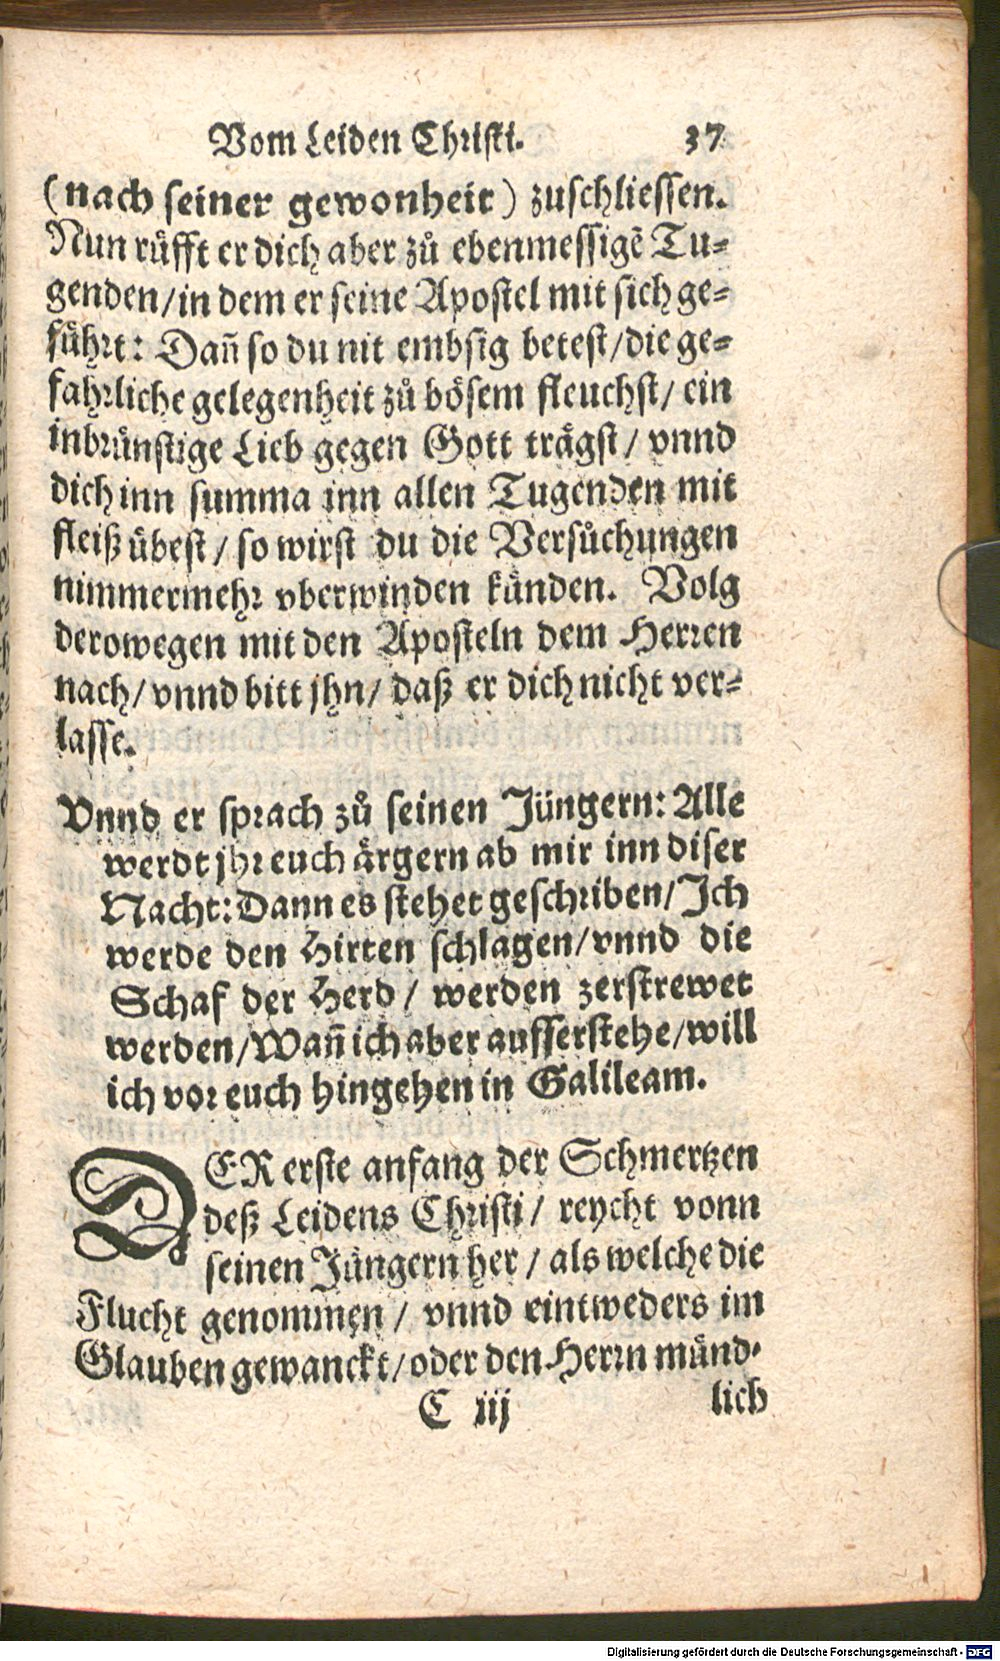 Vom Leiden Christi. 37
(nach seiner gewonheit) zuschliessen.
Nun rüfft er dich aber zů ebenmessigẽ Tu-
genden/in dem er seine Apostel mit sich ge-
führt: Dañ so du nit embsig betest/die ge-
fahrliche gelegenheit zů bösem fleuchst/ ein
inbrünstige Lieb gegen Gott trägst/ vnnd
dich inn summa inn allen Tugenden mit
fleiß übest/ so wirst du die Versůchungen
nimmermehr vberwinden künden. Volg
derowegen mit den Aposteln dem Herren
nach/ vnnd bitt jhn/ daß er dich nicht ver-
lasse.
Vnnd er sprach zů seinen Jüngern: Alle
werdt jhr euch ärgern ab mir inn diser
Nacht: Dann es stehet geschriben/ Ich
werde den Hirten schlagen/vnnd die
Schaf der Herd/ werden zerstrewet
werden/Wañ ich aber aufferstehe/will
ich vor euch hingehen in Galileam.
DER erste anfang der Schmertzen
deß Leidens Christi/ reycht vonn
seinen Jüngern her/ als welche die
Flucht genommen/ vnnd eintweders im
Glauben gewanckt/oder den Herrn münd-
C iij lich
Digitalisierung gefördert durch die Deutsche Forschungsgemeinschaft - DFG